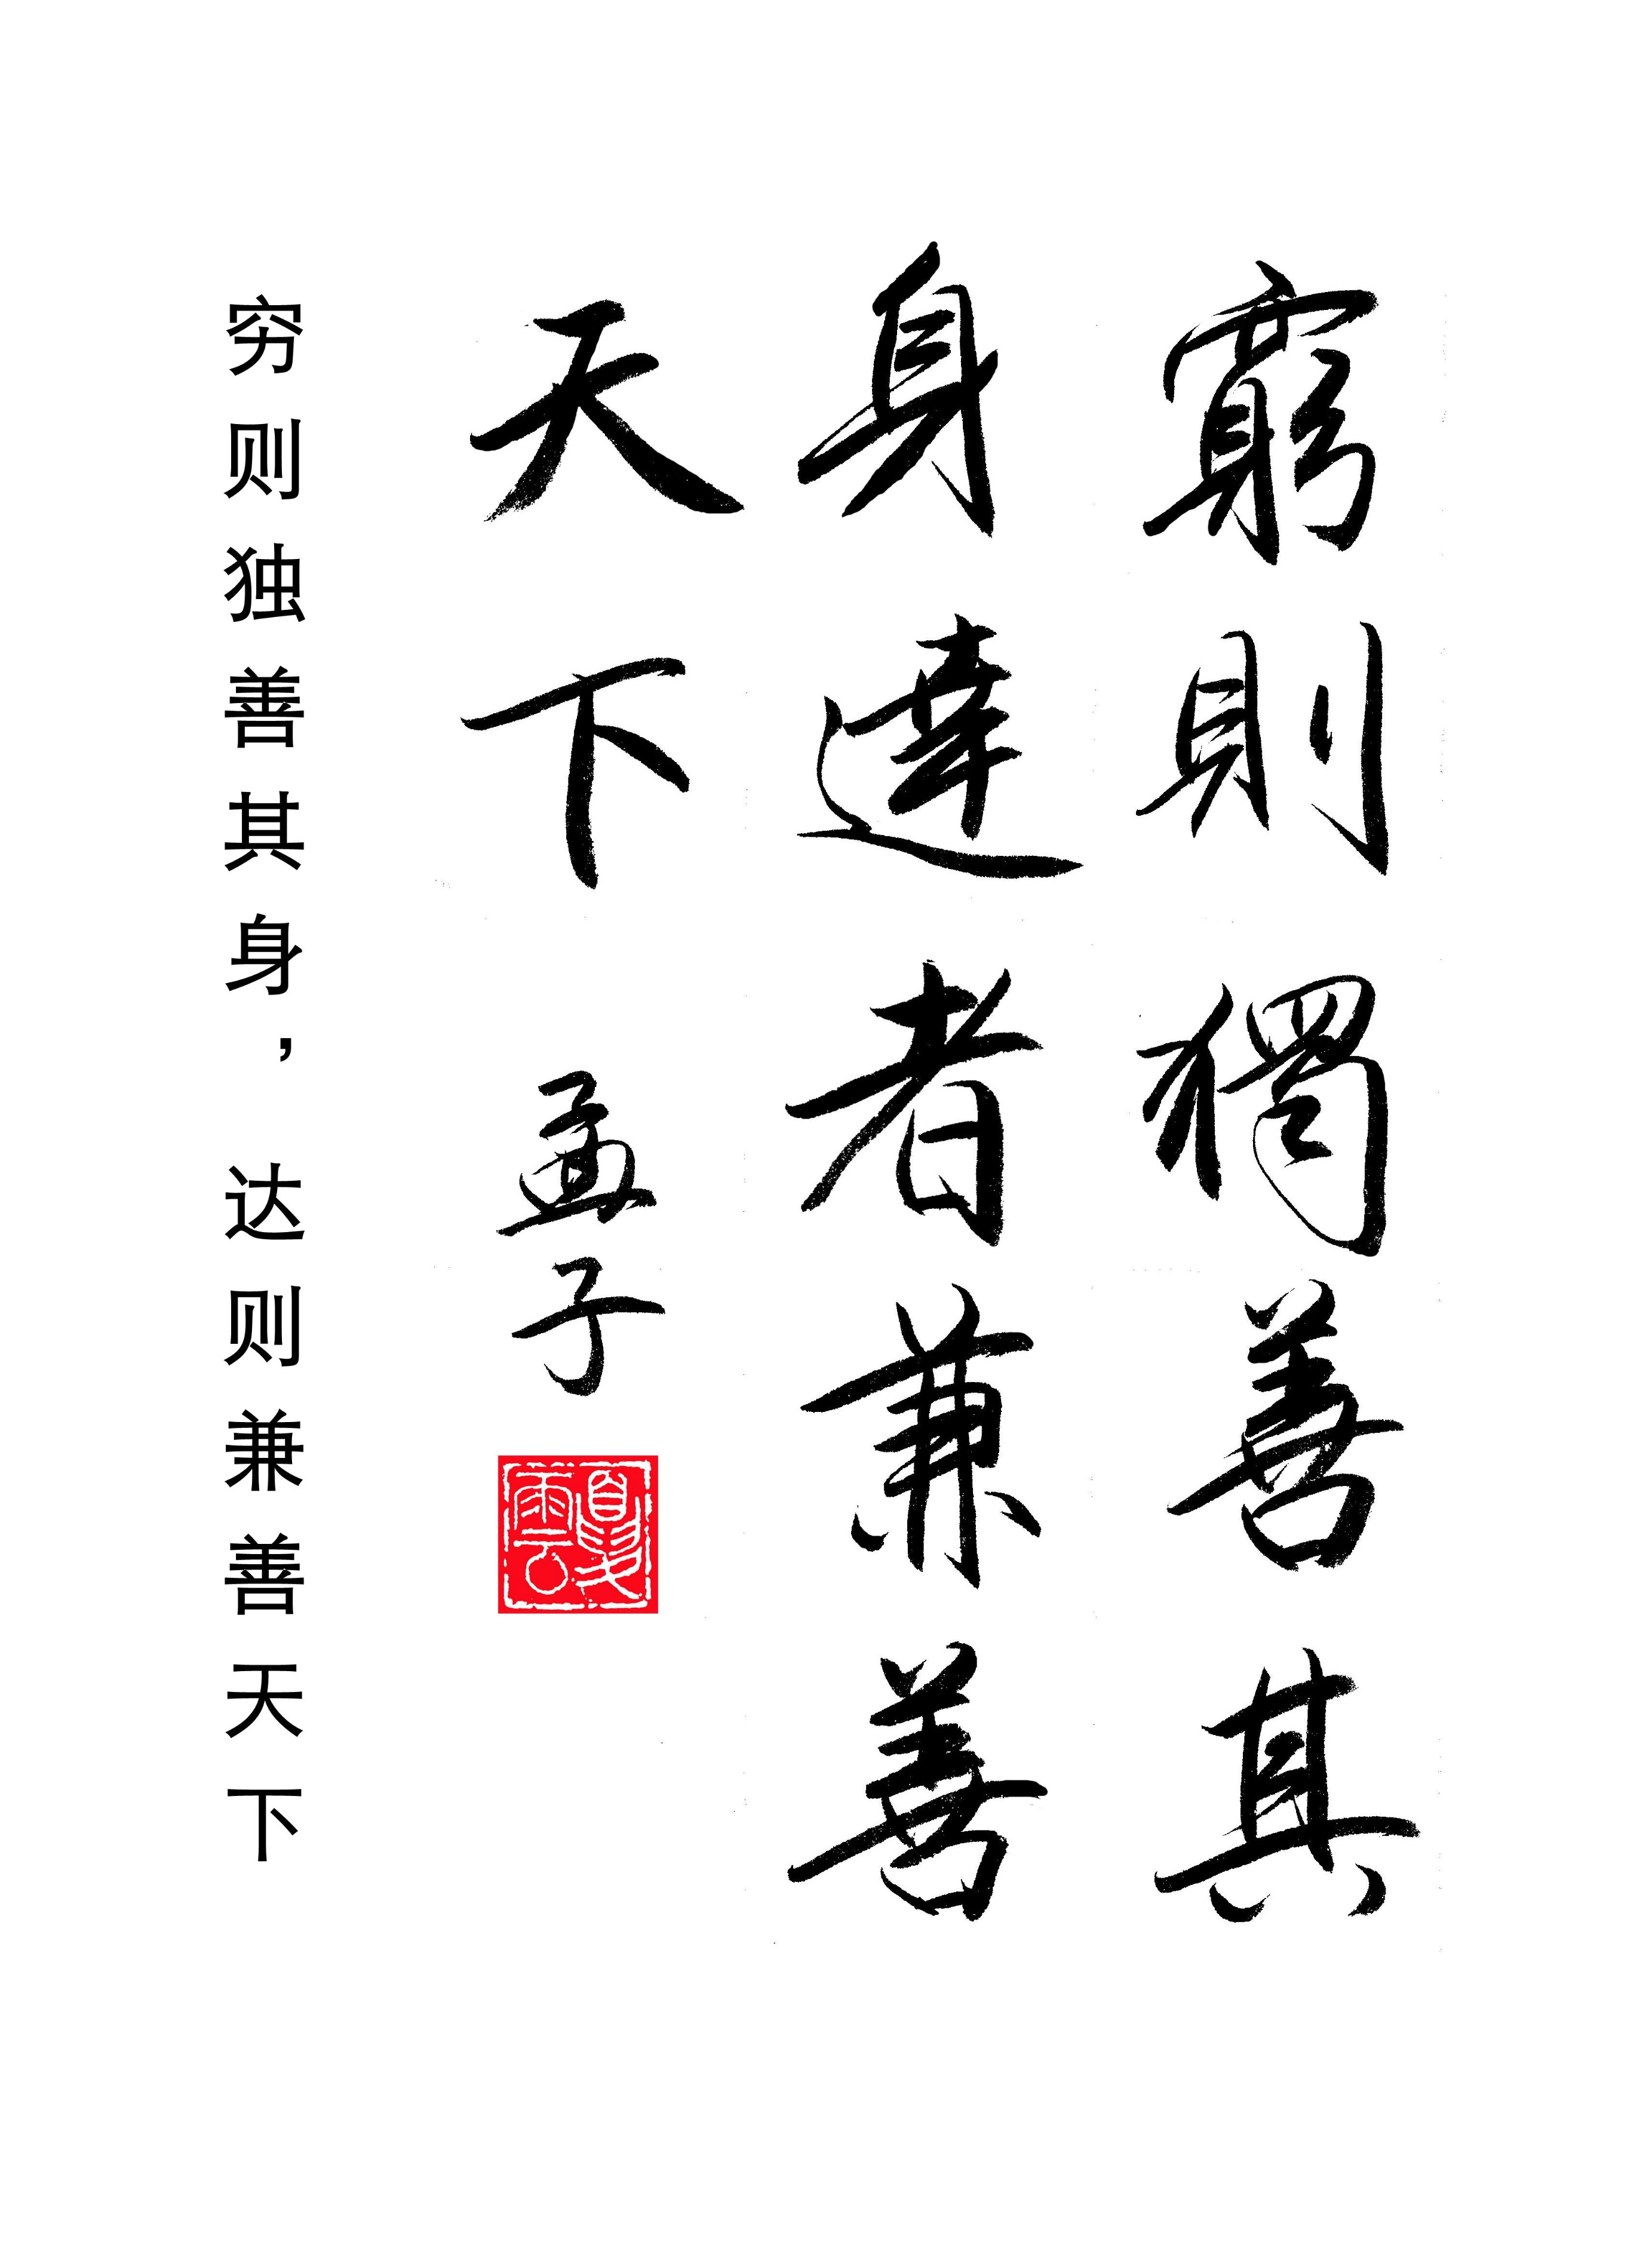 窮則獨善其
身達者兼善
天下
孟子
夏雲
穷则独善其身，达则兼善天下